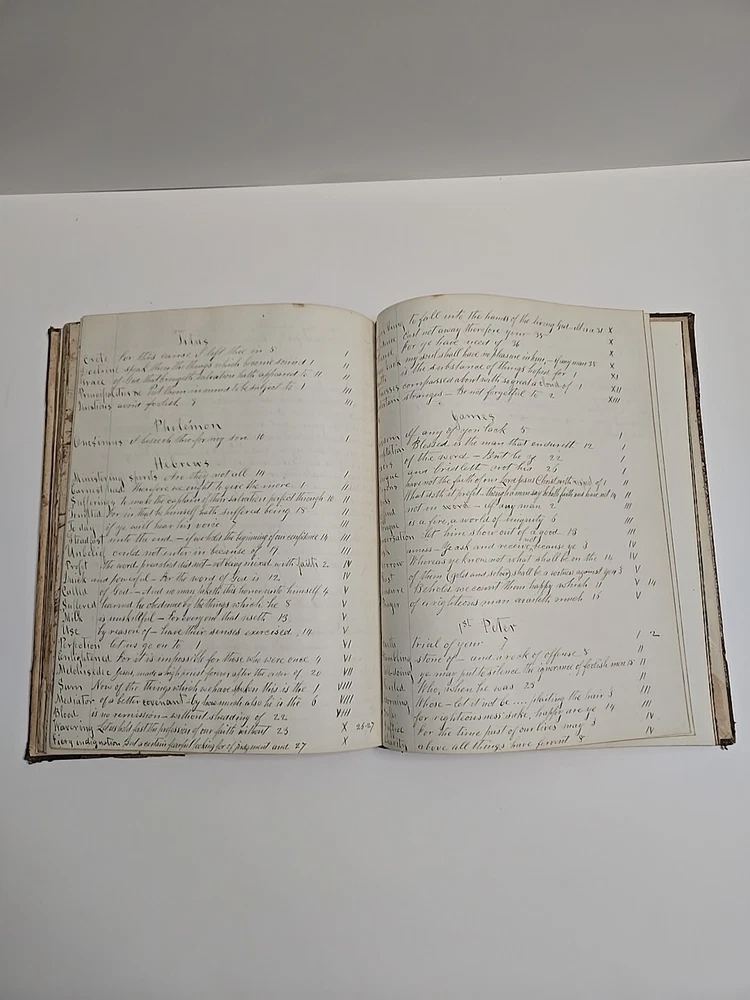 Titus
Crete For this cause I left thee in 5 I
Doctrine speak thou the things which become sound 1 II
Grace of God that bringeth salvation hath appeared to 11 II
Principalities Put them in mind to be subject to 1 III
Questions avoid foolish 9 III
Philemon
Onesimus I beseech thee for my son 10 I
Hebrews
Ministering spirits Are they not all 14 I
Earnest heed Therefore we ought to give the more 1 II
Sufferings to make the captain of their salvation perfect through 10 II
For in that he himself hath suffered being 18 II
To day if ye will hear his voice 7 III
Steadfast unto the end – if we hold the beginning of our confidence 14 III
Unbelief could not enter in because of 19 III
Profit the word preached did not – not being mixed with faith 2 IV
Quick and powerful – For the word of God is 12 IV
Called of God – And no man taketh this honor unto himself 4 V
Suffered learned he obedience by the things which he 8 V
Milk is unskillful – For every one that useth 13 V
Use by reason of – have their senses exercised 14 V
Perfection let us go on to 1 VI
Enlightened For it is impossible for those who were once 4 VI
Melchisedec Jesus, made a high priest forever after the order of 20 VI
Sum Now of the things which we have spoken this is the 1 VIII
Mediator of a better covenant – by how much also he is the 6 VIII
Blood is no remission – without shedding of 22
Wavering Let us hold fast the profession of our faith without 23 X 25-27
Fiery indignation But a certain fearful looking for of judgment and 27 X
to fall into the hands of the living God – It is a 31 X
Cast not away therefore your 35 X
For ye have need of 36 X
my soul shall have no pleasure in him – if any man 38 X
is the substance of things hoped for 1 XI
compassed about with so great a cloud of 1 XII
strangers – Be not forgetful to 2 XIII
James
If any of you lack 5 I
Blessed is the man that endureth 12 I
of the word – But be ye 22 I
and bridleth not his 26 I
have not the faith of our Lord Jesus Christ with respect of 1 II
What doth it profit, though a man say he hath faith and have not 14 II
not in word – if any man 2 III
is a fire, a world of iniquity 6 III
let him show out of a good 13 III
amiss – Ye ask and receive not because ye 3 IV
Whereas ye know not what shall be on the 14 IV
of them (gold and silver) shall be a witness against you 3 V
Behold we count them happy which 11 V
of a righteous man availeth much 16 V
1st Peter
trial of your 7 I
stone of – and a rock of offense 8 II
ye may put to silence the ignorance of foolish men 15 II
Who, when he was 23 II
Whose – let it not be .... plaiting the hair 3 III
for righteousness sake, happy are ye 14 III
For the time past of our lives may 3 IV
above all things have fervent 8 IV